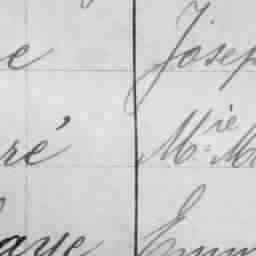 e Josep
ré Mie M
aye Emm